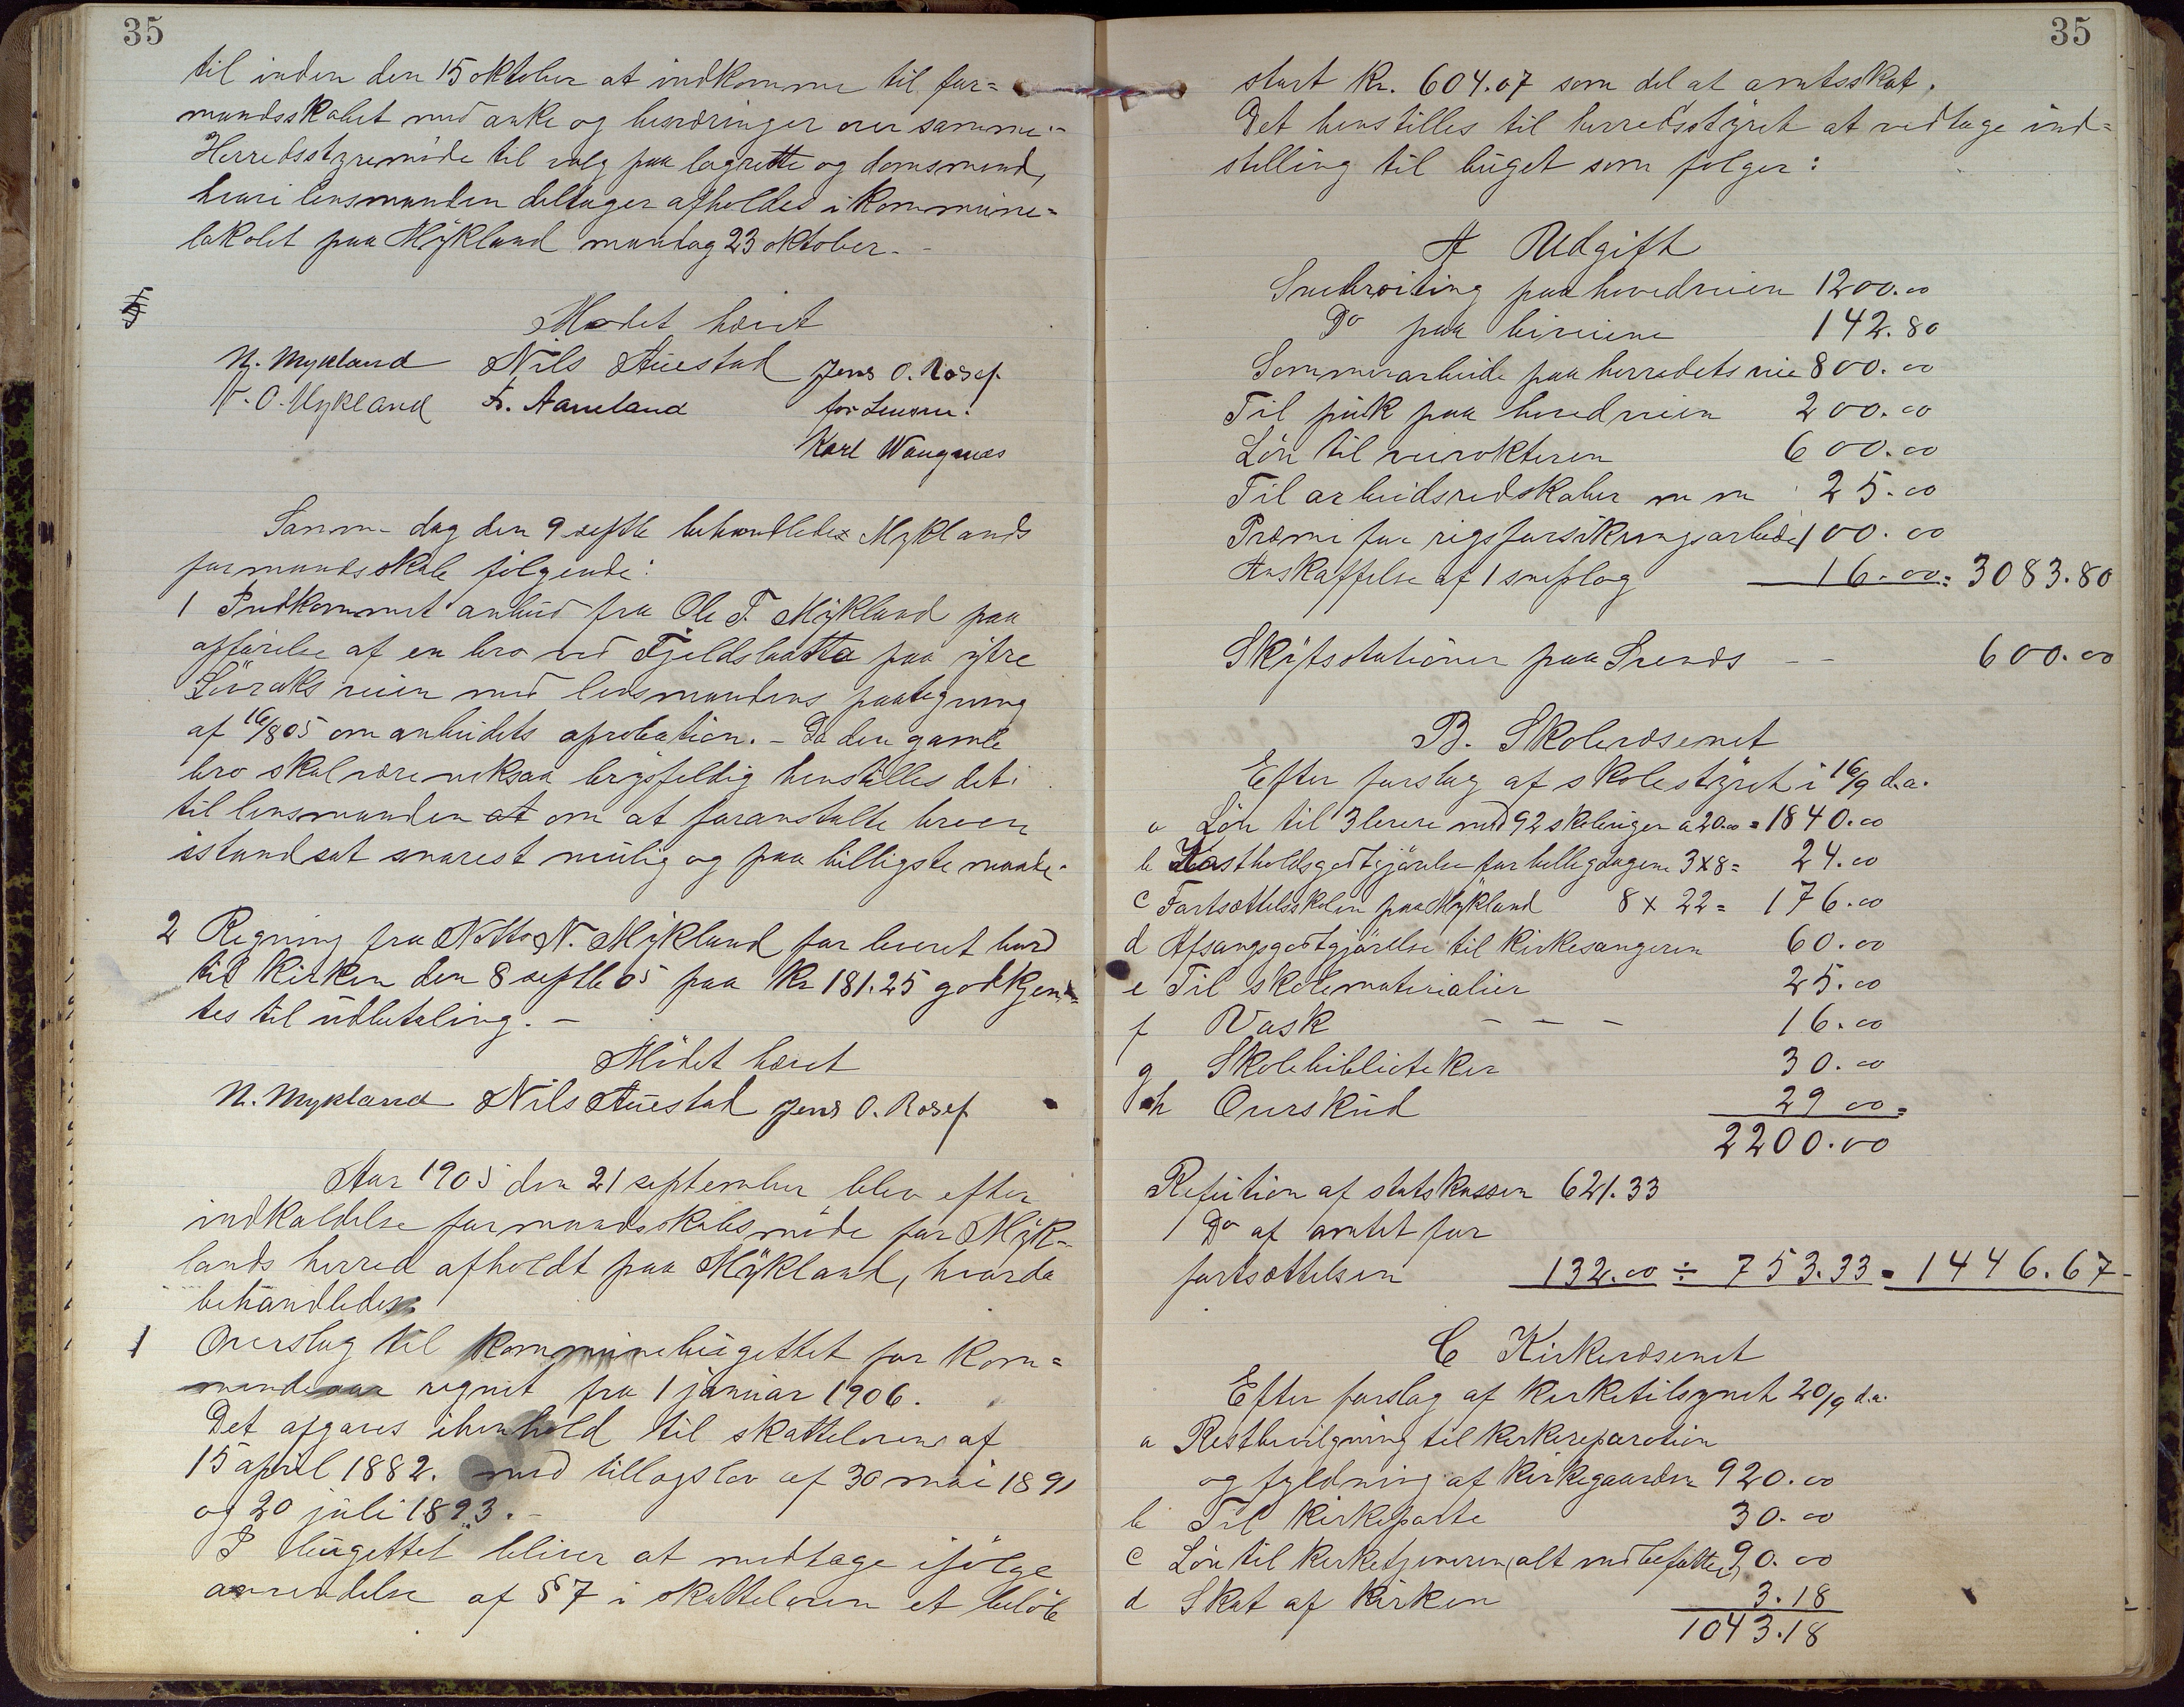 35
til inden den 15 oktober at indkomme til for=
mandsskabet med anke og besværinger over samme.-
Herredsstyremøde til valg paa lagrette og domsmend,
hvori lensmanden deltager afholdes i kommune=
lokalet paa Mykland mandag 23 oktober. -
Mødet hævet
N. Mykland Nils Auestad Jens O. Rosef.
N. O. Mykland F. Aaneland for Lensm.
Karl Wangnæs
Samm- dag den 9 septbr behandledes Myklands
formandsskab følgende:
1 Indkommet anbud fra Ole T. Mykland paa
opførelse af en bro ved Fjeldsbatta paa ytre
Lövraks veien med lensmandens paategning
af 16/8 05 om anbudets aprobation. - Da den gamle
bro skal være meksaa brøsfeldig henstilles det
til lensmanden at om at foranstalte broen
istandsat snarest mulig og paa billigste maade.
2 Regning fra Notto N. Mykland for leveret bord
til kirken den 8 septbr 05 paa kr 181.25 godkjen=
tes til udbetaling. -
Mödet hævet
N. Mykland Nils Auestad Jens O. Rosef
Aar 1905 den 21 september blev efter
indkaldelse formandsskabsmöde for Myk-
lands herred afholdt paa Mykland, hvorda
behandledes
1 Overslag til kommunebugettet for kom=
mende aar regnet fra 1 januar 1906.
Det afgaves ihenhold til skatteloven af
15 april 1882. med tillægslov af 30 mai 1891
og 20 juli 1893. -
I bugettet bliver at medtage ifölge
anvendelse af § 7 i skatteloven et belöb
35
stort kr. 604.07 som del at amtsskat.
Det henstilles til herredsstyret at vedtage ind=
stilling til buget som følger:
A Udgift
Snebroiting paa hovedveien 1200.00
Do paa biveiene 142.80
Sommerarbeide paa herredets veie 800.00
Til puk paa hovedveien 200.00
Lön til veivokteren 600.00
Til arbeidsredskaber m m 25.00
Præmi for rigsforsikringsarbeide 100.00
Anskaffelse af 1 sneplog 16.00 = 3083.80
Skyfsstationer paa Svends - - 600.00
B. Skolevæsenet
Efter forslag af skolestyret i 16/9 d.a.
a Lön til 3 lerere med 92 skoleuger a 20.00 = 1840.00
b Kostholdsgodtgjörelse for hellegdagene 3 x 8 = 24.00
c Fortsættelsskolen paa Mykland 8 x 22 = 176.00
d Afsangsgodtgjörelse til kirkesangeren 60.00
e Til skolematerialier 25.00
f Vask - - - 16.00
g Skolebiblioteker 30.00
h Overskud 29 00 =
2200.00
Refution af statskassen 621.33
Do af amtet for
fortsættelsen 132.00 ÷ 753.33 = 1446.67
C Kirkevæsenet
Efter forslag af kirketilsynet 20/9 d.a.
a Restbevilgning til kirkereparation
og fyldning af kirkegaarden 920.00
b Til kirkeporte 30.00
c Lön til kirketjeneren (alt indbefattet) 90.00
d Skat af kirken 3.18
1043.18